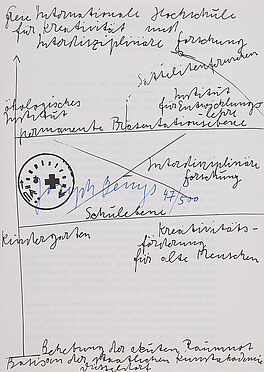 Freie Internationale Hochschule
für Kreativität und
Interdisziplinäre Forschung
Satelitenformen
ökologisches
Institut
Institut
für Entwicklungs-
lehre
permanente Präsentationsebene
Interdisziplinäre
Forschung
Joseph Beuys 47/500
Schulebene
Kindergarten
Kreativitäts-
förderung
für alte Menschen
Behebung der akuten Raumnot
Basis an der staatlichen Kunstakademie
Düsseldorf